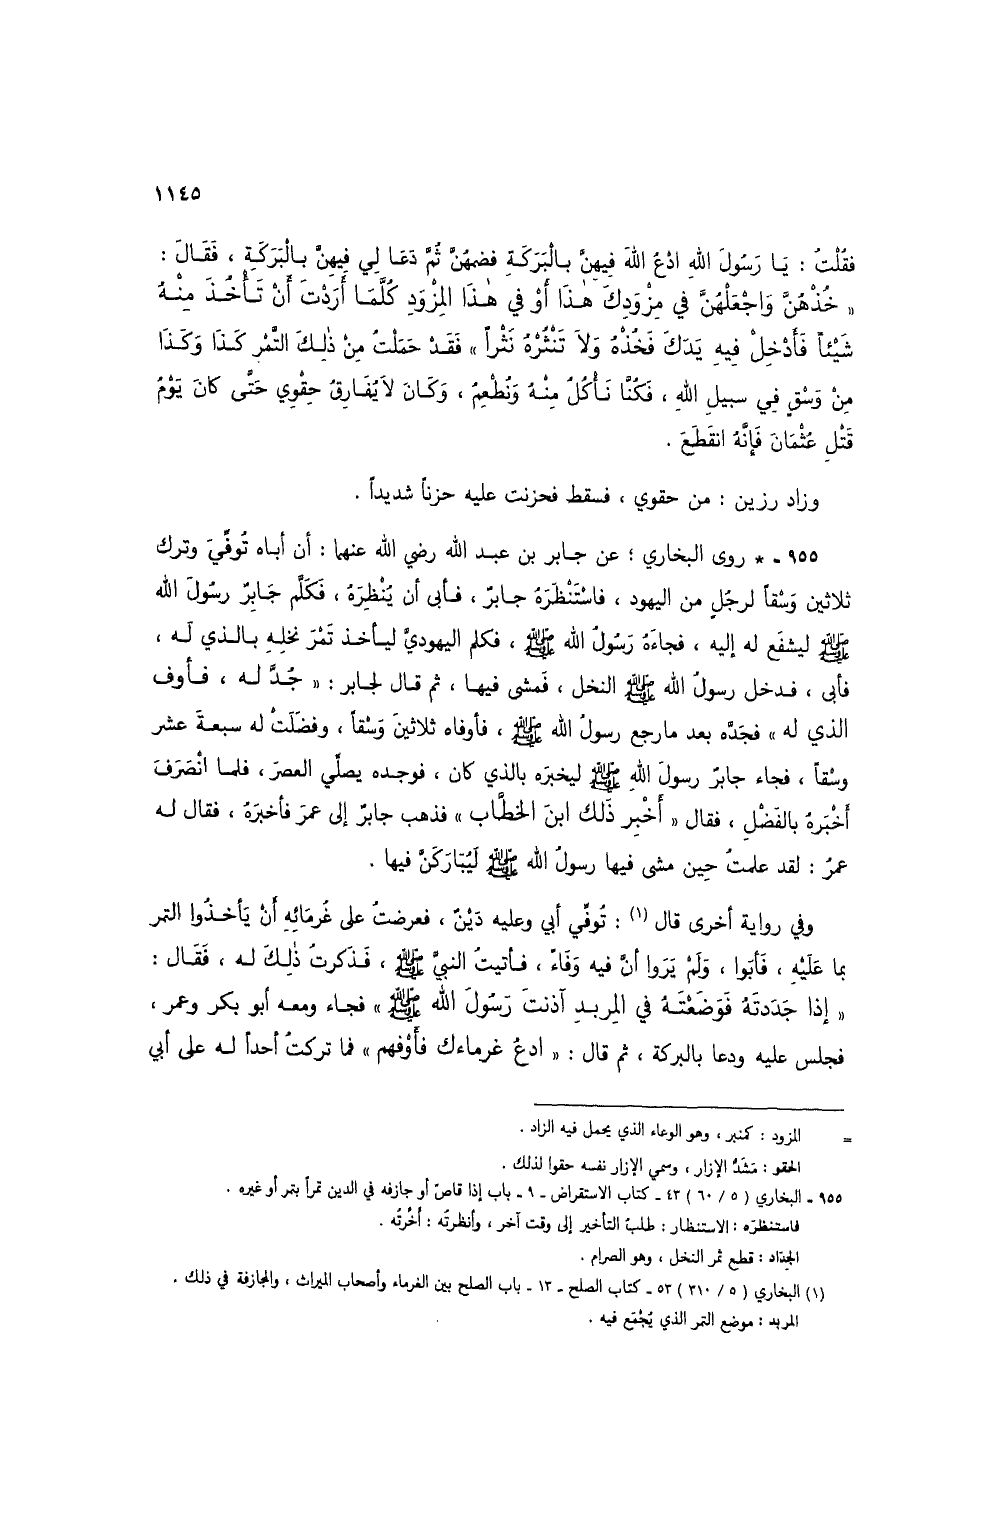 ١١٤٥
فقُلْتُ : يَـا رَسُولَ اللهِ ادْعُ اللهَ فِيهِنَّ بـالْبَرَكَـةِ فضمهُنَّ ثُمَّ دَعَـا لِي فِيهِنَّ بـالْبَرَكَـةِ ، فَقَـالَ :
« خُذْهُنَّ وَاجْعَلْهُنَّ في مِزْوَدِكَ هٰذَا أَوْ في هٰذَا المِزْوَدِ كُلَّمَـا أَرَدْتَ أَنْ تَـأْخُـذَ مِنْـهُ
شَيْئاً فَأَدْخِلْ فِيهِ يَدَكَ فَخُذْهُ وَلاَ تَنْثُرْهُ نَثْراً » فَقَـدْ حَمَلْتُ مِنْ ذٰلِـكَ التَّمْرِ كَـذَا وَكَـذَا
مِنْ وَسْقٍ فِي سبيلِ اللهِ ، فَكُنَّا نَـأْكُلُ مِنْـهُ وَنُطْعِمُ ، وَكَـانَ لاَيُفَـارِقُ حِقْوِي حَتَّى كَانَ يَوْمُ
قَتْلِ عُثْمَانَ فَإِنَّهُ انقَطَعَ .
وزاد رزين : من حقوي ، فسقط فحزنت عليه حزناً شديداً .
٩٥٥ ـ * روى البخاري ؛ عن جـابر بن عبـد الله رضي الله عنهما : أن أبـاه تُوفِّيَ وترك
ثلاثين وَسْقاً لرجُلٍ من اليهود ، فاسْتَنْظَرَهُ جـابرٌ ، فـأبى أن يُنْظِرَهُ ، فَكَلَّم جَابرٌ رسُولَ الله
ﷺ ليشفَع له إليه ، فجاءَهُ رَسُولُ الله ﷺ ، فكلم اليهوديَّ ليـأخـذ تَمْرَ نخلِـهِ بـالـذي لَـه ،
فأبى ، فـدخل رسولُ الله ﷺ النخل ، فَمشى فيهـا ، ثم قـال لجابر : « جُـدَّ لـه ، فـأوف
الذي له » فجَدَّه بعد مارجع رسولُ الله ﷺ ، فأوفاه ثلاثينَ وَسْقاً ، وفضَلَتْ له سبعـةَ عشر
وسْقاً ، فجاء جابرٌ رسولَ اللهِ ﷺ ليخبرَه بالذي كان ، فوجـده يصلِّي العصرَ ، فلمـا انْصَرَفَ
أَخْبَرهُ بالفَضْلِ ، فقال « أَخْبِر ذَلك ابنَ الخطَّاب » فذهب جابرٌ إلى عمرَ فأخبرَهُ ، فقال لـه
عمرُ : لقد علمتُ حِين مشى فيها رسولُ الله ﷺ لَيُبَارَكَنَّ فيها .
وفي رواية أخرى قال (١) : تُوفِّي أبي وعليه دَيْنٌ ، فعرضتُ على غُرمَائِهِ أَنْ يَأخـذُوا التمر
بما عَلَيْهِ ، فَأَبَوا ، وَلَمْ يَرَوا أنَّ فيه وَفَاءً ، فـأتيتُ النبيَّ ﷺ ، فَـذَكرتُ ذٰلِـكَ لـه ، فَقَـال :
« إذا جَدَدتَهُ فَوَضَعْتَـهُ في المِربـدِ آذنتَ رَسُولَ الله ﷺ » فجـاء ومعـه أبو بكر وعمر ،
فجلس عليه ودعا بالبركة ، ثم قال : « ادعُ غرماءك فأَوْفهم » فما تركتُ أحداً لـه على أبي
= المزود : كمنبر ، وهو الوعاء الذي يحمل فيه الزاد .
الحقو : مَشَدُّ الإزار ، وسمي الإزار نفسه حقوا لذلك .
٩٥٥ ـ البخاري ( ٥ / ٦٠ ) ٤٣ ـ كتاب الاستقراض ـ ٩ ـ باب إذا قاصَّ أو جازفه في الدين تمراً بتمر أو غيره .
فاستنظرَه : الاستنظار : طلبُ التأخير إلى وقت آخر ، وأنظرتُه : أخَّرتُه .
الجدّاد : قطع ثمر النخل ، وهو الصرام .
(١) البخاري ( ٥ / ٣١٠ ) ٥٣ ـ كتاب الصلح ـ ١٣ ـ باب الصلح بين الغرماء وأصحاب الميراث ، والمجازفة في ذلك .
المربد : موضع التمر الذي يُجْمَع فيه .